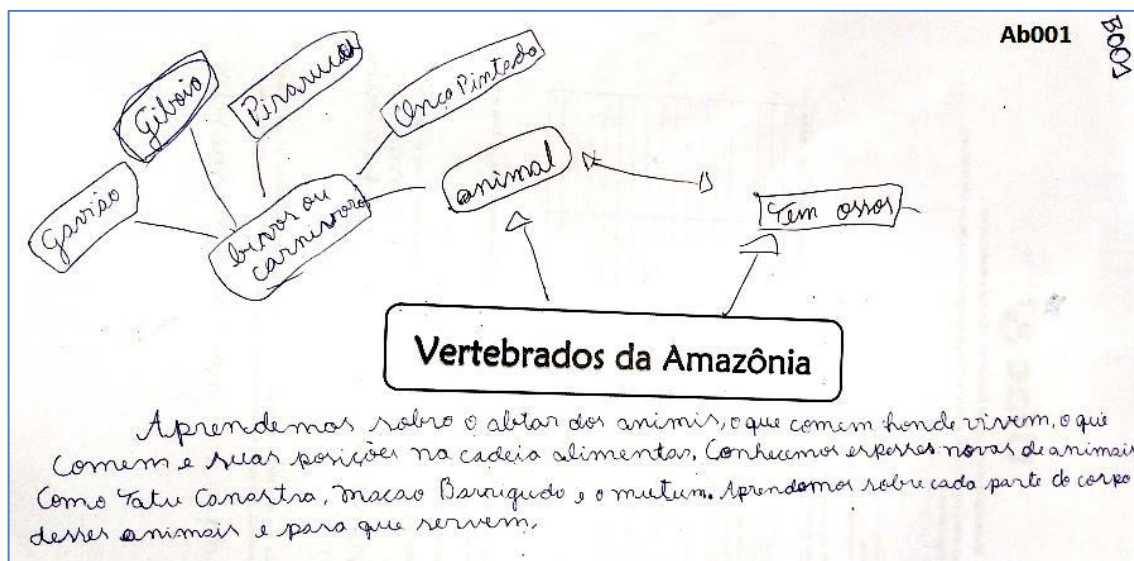 Ab001
B001
Giboia
Pirarucu
Onça Pintada
Gavião
bixos ou
carnivoro
animal
Tem ossos
Vertebrados da Amazônia
Aprendemos sobre o abtar dos animis, o que comem honde vivem, o que
comem e suas posições na cadeia alimentar. Conhecemos espesses novas de animais
Como Tatu Canastra, macaco Barrigudo, e o mutum. Aprendemos sobre cada parte do corpo
desses animais e para que servem.